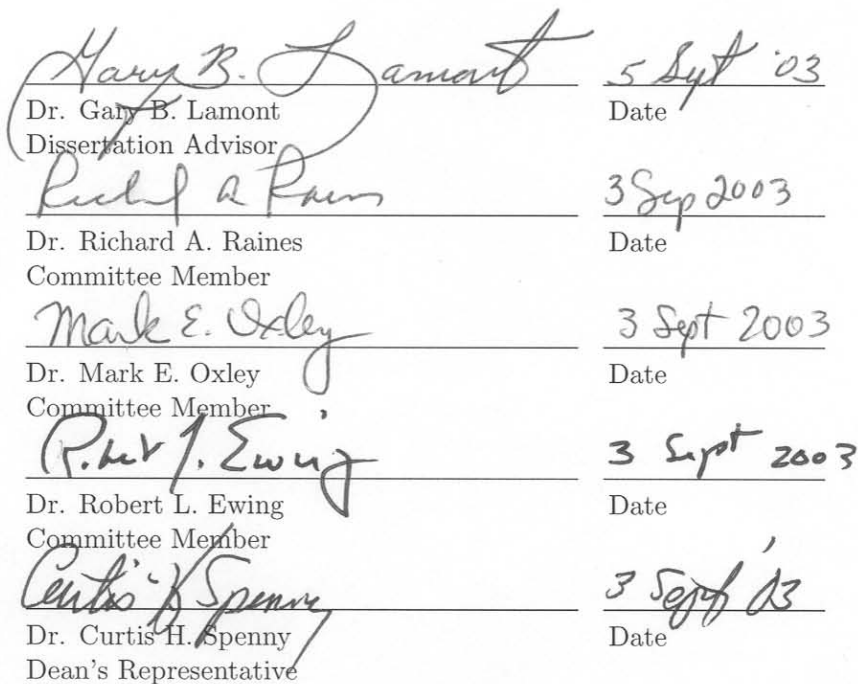 Gary B. Lamont 5 Sept '03
Dr. Gary B. Lamont Date
Dissertation Advisor
Richard A Raines 3 Sep 2003
Dr. Richard A. Raines Date
Committee Member
Mark E. Oxley 3 Sept 2003
Dr. Mark E. Oxley Date
Committee Member
Ewing 3 Sept 2003
Dr. Robert L. Ewing Date
Committee Member
Curtis H Spenny 3 Sept '03
Dr. Curtis H. Spenny Date
Dean's Representative